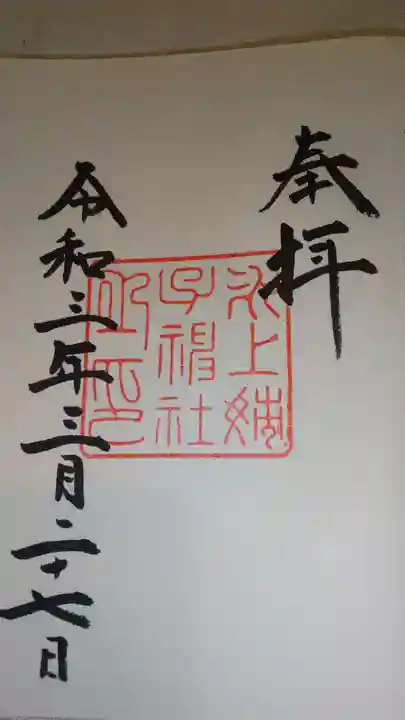 奉拝
氷上姉
子神社
之印
令和三年三月二十七日